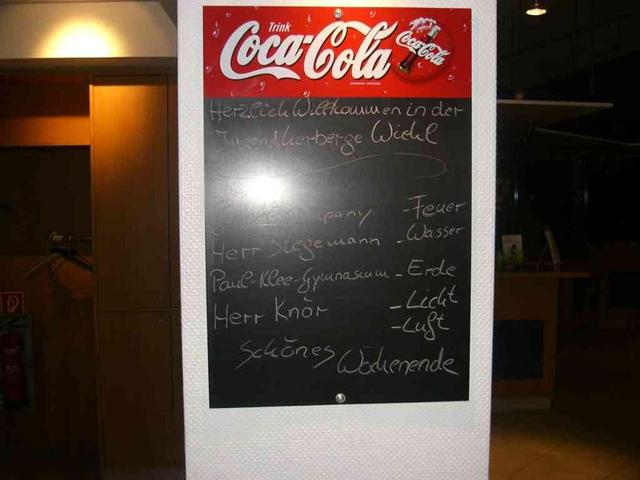 Trink
Coca-Cola
Coca-Cola
Herzlich Willkommen in der
Jugendherberge Wiehl
Company - Feuer
Herr Stegemann - Wasser
Paul-Klee-Gymnasium - Erde
Herr Knör - Licht
- Luft
Schönes Wochenende